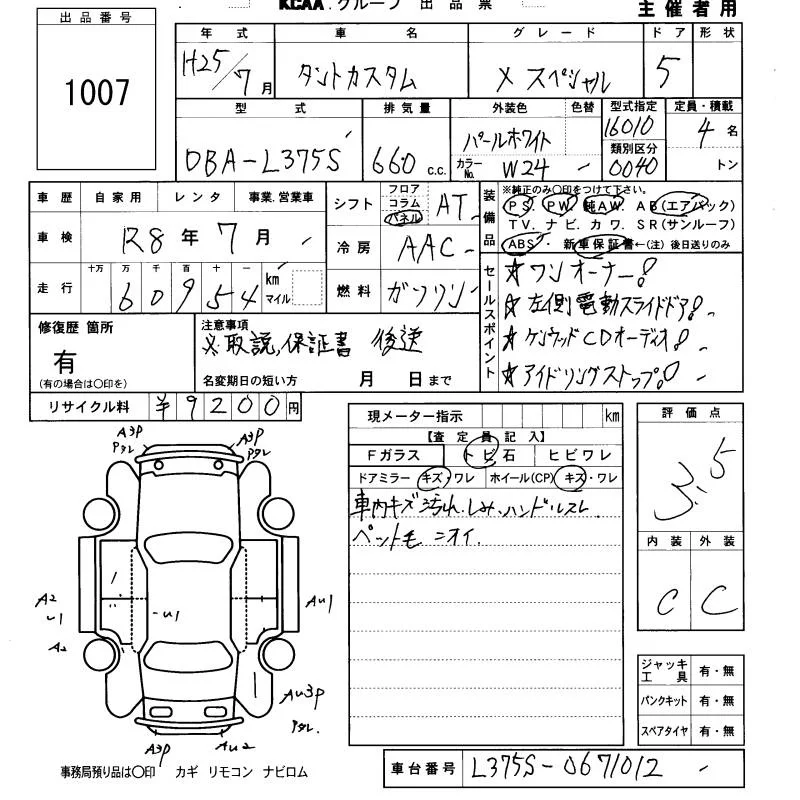 KCAA.グループ 出品票
主催者用
出品番号
1007
年式 車名 グレード ドア 形状
H25/7月 タントカスタム X スペシャル 5
型式 排気量 外装色 色替 型式指定 定員・積載
DBA-L375S 660 c.c. パールホワイト 16010 4名
カラーNo. W24 類別区分 0040 トン
車歴 自家用 レンタ 事業.営業車
シフト フロア コラム パネル AT
装備品
※純正のみ○印をつけて下さい。
PS. PW. 純AW. AB(エアバック)
TV. ナビ. カワ. SR(サンルーフ)
ABS・新車保証書←(注)後日送りのみ
車検 R8年7月
冷房 AAC
走行 十万 万 千 百 十 一 km マイル
60954
燃料 ガソリン
セールスポイント
☆ワンオーナー!
☆左側電動スライドドア!
☆ケンウッドCDオーディオ!
☆アイドリングストップ!
修復歴 箇所
有
(有の場合は○印を)
注意事項
※取説,保証書 後送
名変期日の短い方 月 日まで
リサイクル料 ¥9200円
現メーター指示 km
【査定員記入】
Fガラス トビ石 ヒビワレ
ドアミラー キズ・ワレ ホイール(CP) キズ・ワレ
車内キズ汚れ.しみ.ハンドルスレ
ペット毛 ニオイ.
評価点
3.5
内装 外装
C C
A3P
Pタレ
A3P
Pタレ
A2
U1
A2
U1
AU1
AU3P
Pタレ.
A3P
AU2
ジャッキ工具 有・無
パンクキット 有・無
スペアタイヤ 有・無
事務局預り品は○印 カギ リモコン ナビロム
車台番号 L375S-0671012